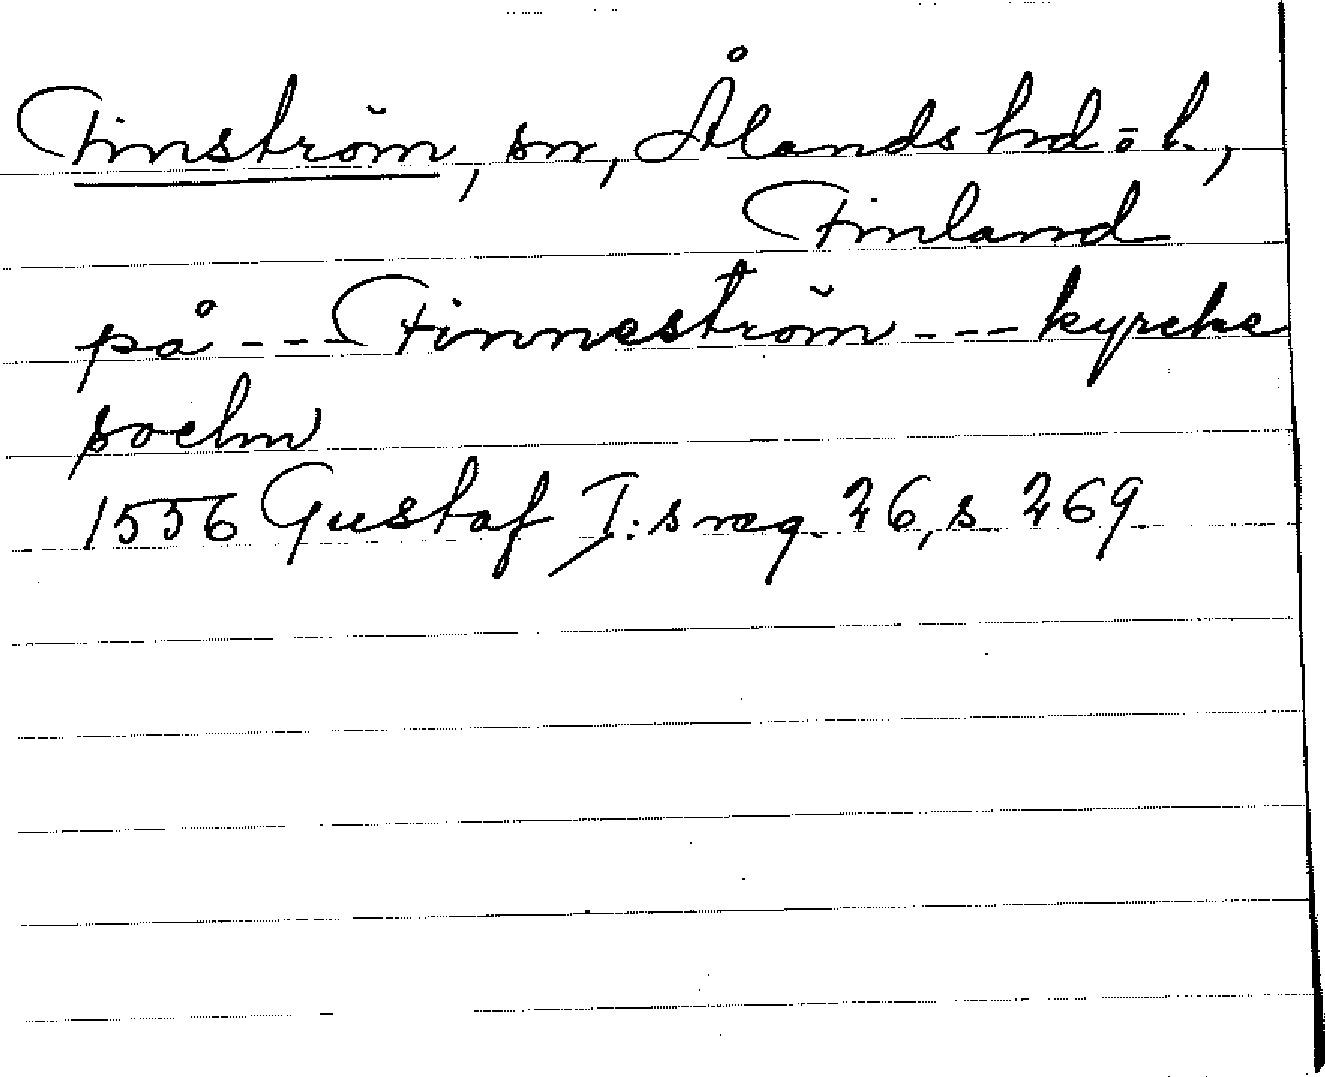 Finström, sn, Ålands hd o. l.,
Finland
på --- Finneström --- kyrcke
sochn
1556 Gustaf I:s reg. 26, s 269